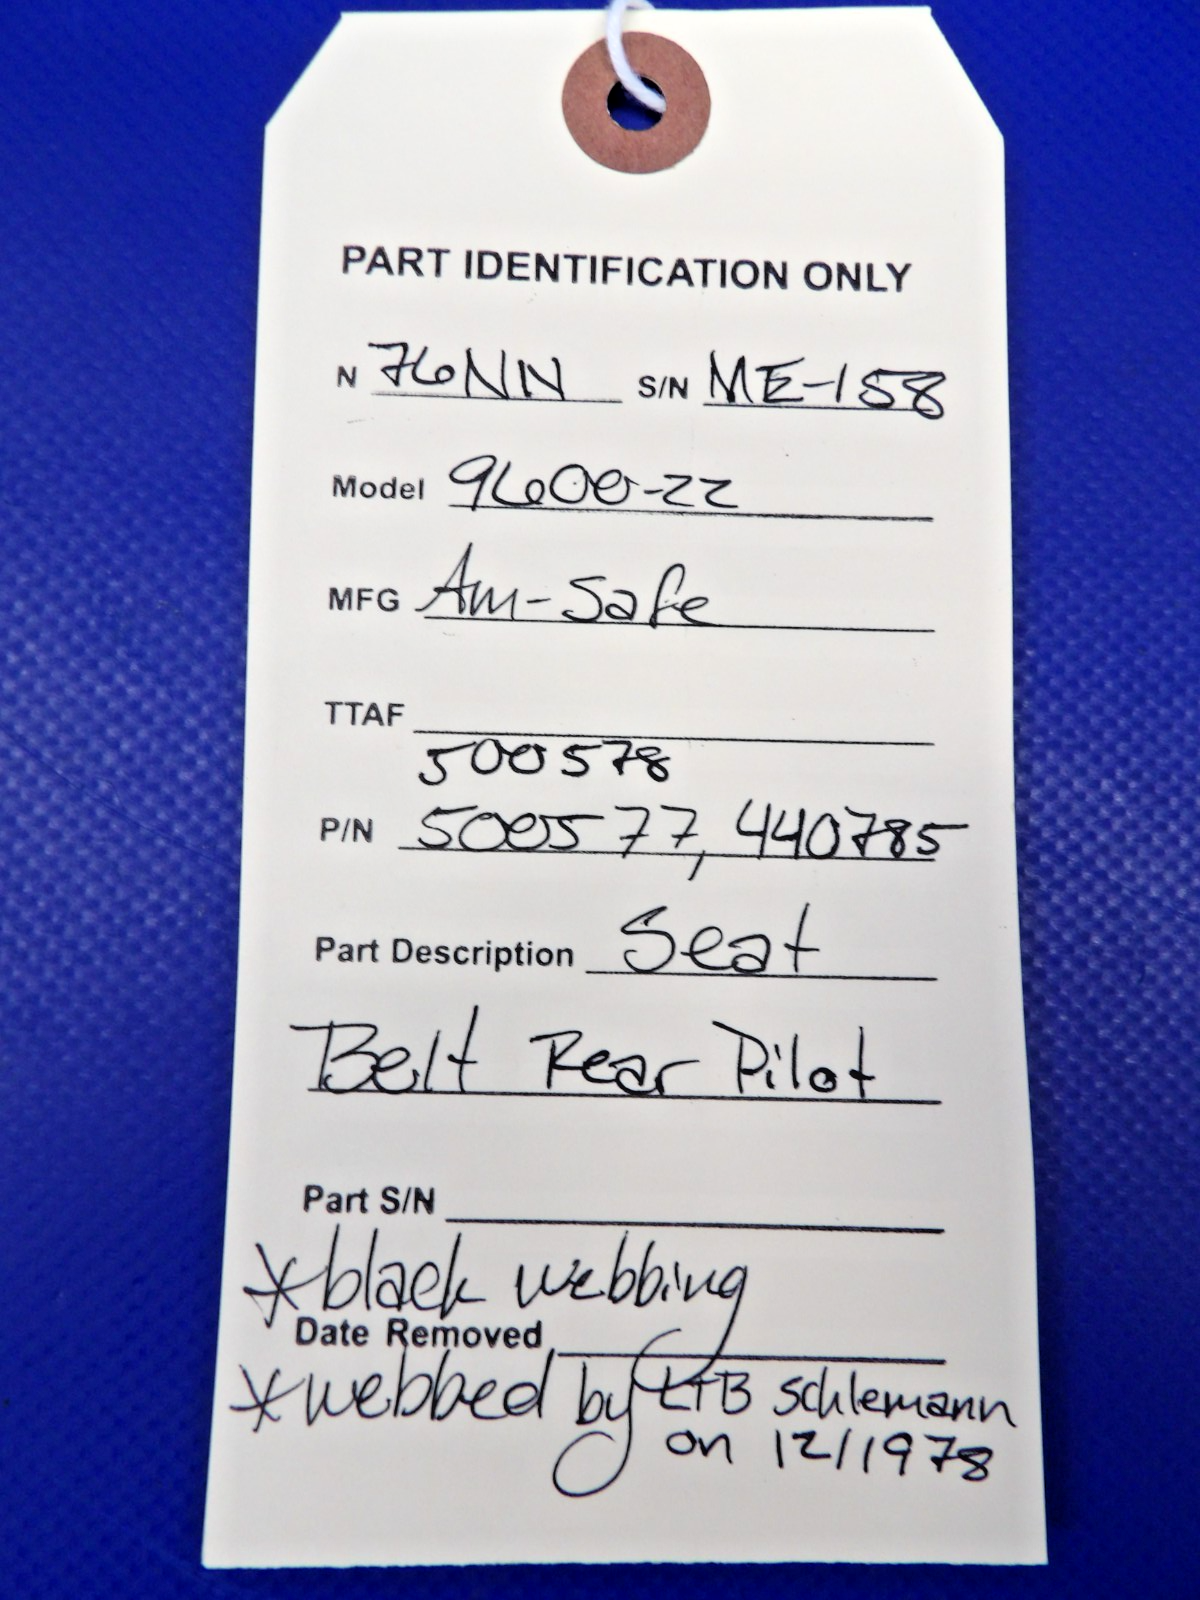 PART IDENTIFICATION ONLY
N 76NN S/N ME-158
Model 9600-22
MFG Am-Safe
TTAF
500578
P/N 500577, 440785
Part Description Seat
Belt Rear Pilot
Part S/N
*black webbing
Date Removed
*webbed by Schlemann
on 12/1978